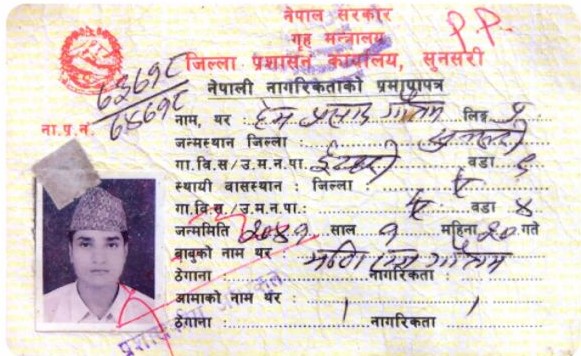 नेपाल सरकार
गृह मन्त्रालय
जिल्ला प्रशासन कार्यालय, सुनसरी
नेपाली नागरिकताको प्रमाणपत्र
ना.प्र.नं.
नाम, थर : हेम प्रसाद गौतम लिङ्ग पु
जन्मस्थान जिल्ला : सुनसरी
गा.वि.स/उ.म.न.पा. ईटहरी वडा
स्थायी वासस्थान : जिल्ला ऐ
गा.वि.स./उ.म.न.पा.: ऐ वडा ४
जन्ममिति २०४१ साल १ महिना २० गते
बाबुको नाम थर : गौतम
ठेगाना : नागरिकता :
आमाको नाम थर :
ठेगाना : नागरिकता